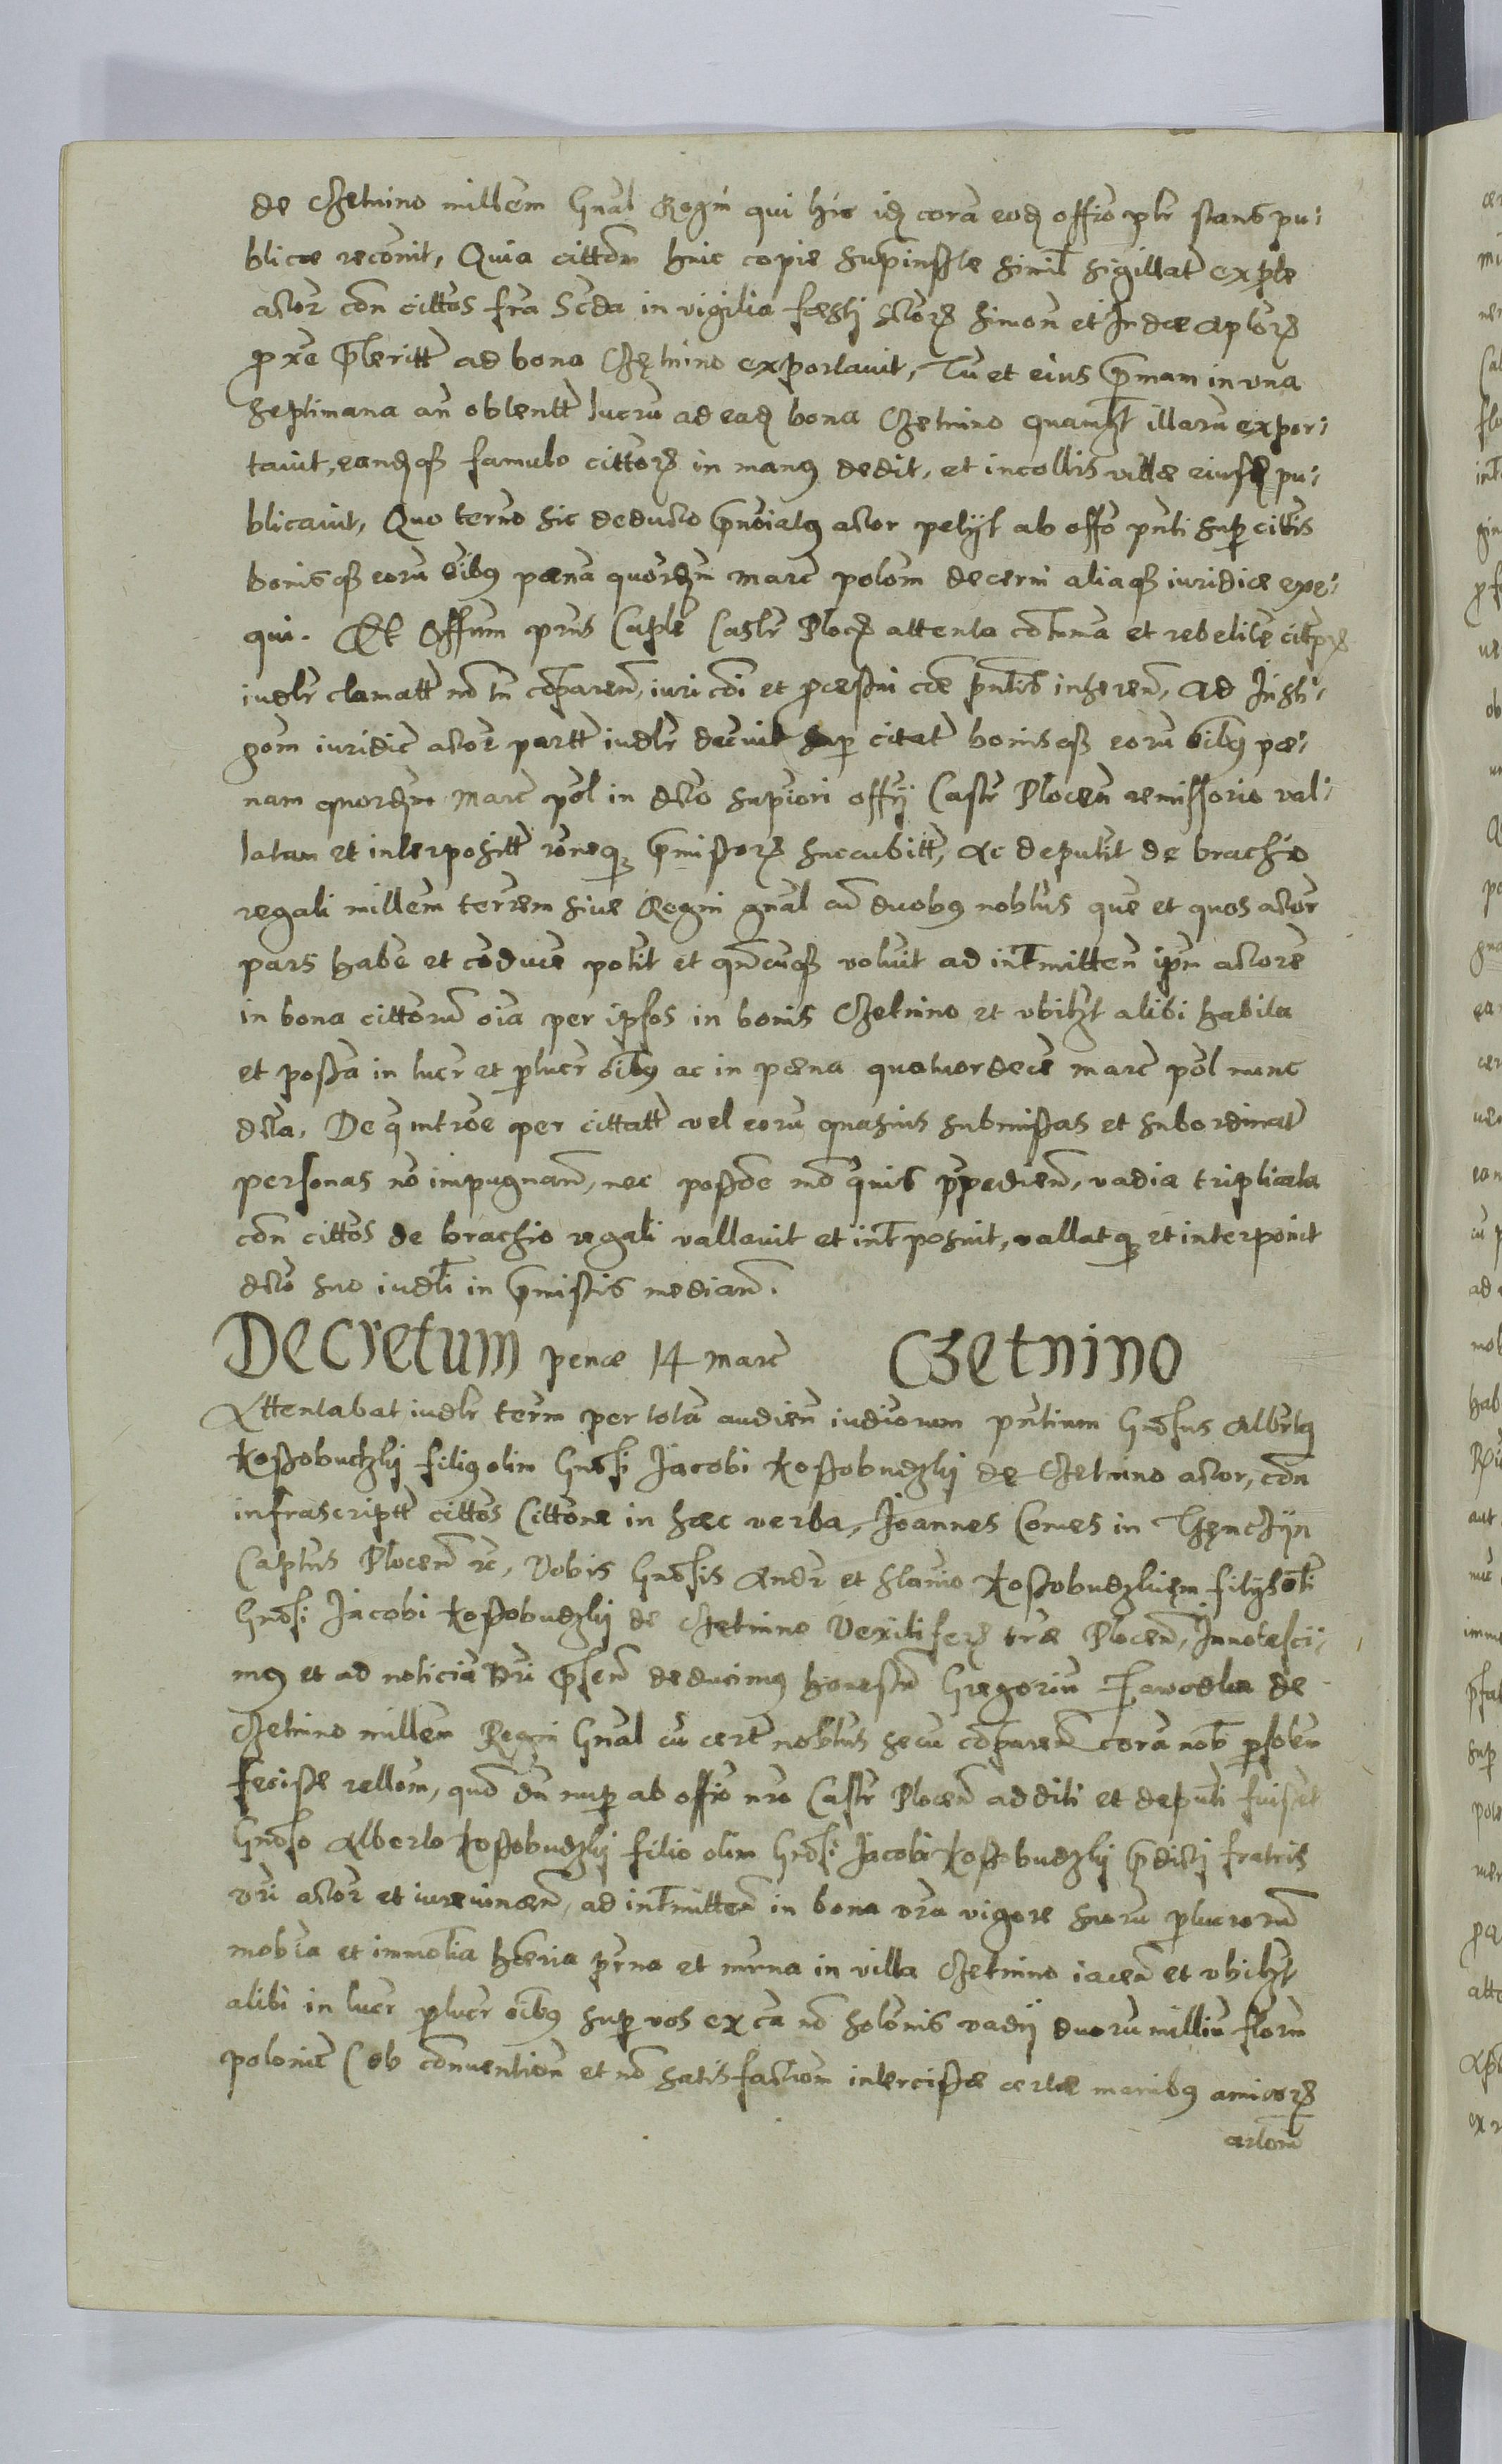 de Czetnino millem Gnal Regni qui hic idē corā eodē offīo plr stans pu-
blice recōnit, Quia cittōm huic copie supinsrte simil sigillatȓ ex ple
actor cōn cittos fra Scda in vigilia fæsti sctorȝ Simon et Judæ aplorȝ
pxe p̄teritt ad bona Czętnino exportavit, Tū et eius p̄mam in una
septimana an obtentt lucrū ad eadē bona Czetnino quamlȝt illarū expor-
tavit, eandēqȝ famulo cittorȝ in manꝰ dedit, et incollis villæ eiusdē pu-
blicavit, Quo termō sic deducto p̄noiatꝰ actor petijt ab offō pn̄ti sup cittis
bonisqȝ eorū oibꝰ pœnā quordm marc polom decerni aliaqȝ iuridicæ exe-
qui. Et Offum prns Caple Castr Plocȝ attenta cōtuma et rebelite cittorȝ
iudlr clamatt nō tn cōparen, iuri cōi et p̄cessui cæ p̄ntis inseren, Ad Insti-
gom iuridic actore partt iudlr decuit sup citatȓ bonisqȝ eorū oibꝰ pœ-
nam quordm marc pol in dcto supiori offij Castr Plocen remissorio val-
latam et interpositt rōneqȝ p̄missorȝ succubitt, Ac deputit de brachio
regali millem terrem sive Regni gnal cū duobꝰ nobbus que et quos actor
pars habē et cōducē potit et qn̄cuqȝ voluit ad int̄mitten ipm actorē
in bona cittorū oia per ipsos in bonis Czetnino et ubilȝt alibi habita
et possa in lucr et plucr oibꝰ ac in pœna quatuordecē marc pol nunc
dcta. De q intrōe per cittatt vel eorū quasuis submissas et subordinatȓ
personas nō impugnan, nec possōe mō quis p̄pedien, vadia triplicata
cōn cittos de brachio regali vallavit et int̄posuit, vallatqȝ et interponit
dcto suo iudli in p̄missis median.
Decretum penæ 14 marc Czetnino
Attentabat iudlr term per totā audien iudiorum pn̄tium Gnosus Albrtꝰ
Kossobudzkij filiꝰ olim Gnosi Jacobi Kossobudzkij de Czetnino actor, cōn
infrascriptt cittos Cittone in hæc verba, Joannes Comes in Thęnczijn
Captns Plocen rc, Vobis Gnosis Andr et Slanio Kossobudzkiem filijs olī
Gnosi Jacobi Kossobudzkij de Czetnino Vexiliferȝ træ Plocen, Innotesci-
mꝰ et ad noticiā vri p̄sen deducimꝰ honestū Gregoriū de
Czetnino millem Regni Gnal cū certȓ nobbus secū cōparen corā nob psolm
fecisse rellom, quō dū nup ab offīo nro Castr Plocen additi et deputi fuisset
Gnoso Alberto Kossobudzkij filio olim Gnosi Jacobi Kossobudzkij p̄dicti fratris
vri actor et iurevincen, ad int̄mitten in bona vra vigore suorū plucrorū
mobia et immolia hæria prna et mrna in villa Czetnino iacen et ubilȝt
alibi in lucr plucr oibꝰ sup vos ex ca nō solonis vadij duorū milliū florm
polonic (ob conventiom et nō satisfactiom intercissæ certæ manibꝰ amicorȝ